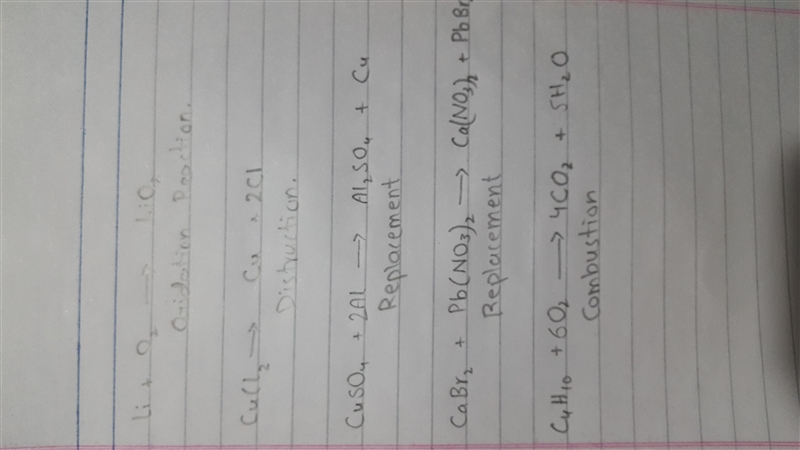 Li + O₂ → LiO₂
Oxidation Reaction.
CuCl₂ → Cu + 2Cl
Distruction.
CuSO₄ + 2Al → Al₂SO₄ + Cu
Replacement
CaBr₂ + Pb(NO₃)₂ → Ca(NO₃)₂ + PbBr
Replacement
C₄H₁₀ + 6O₂ → 4CO₂ + 5H₂O
Combustion